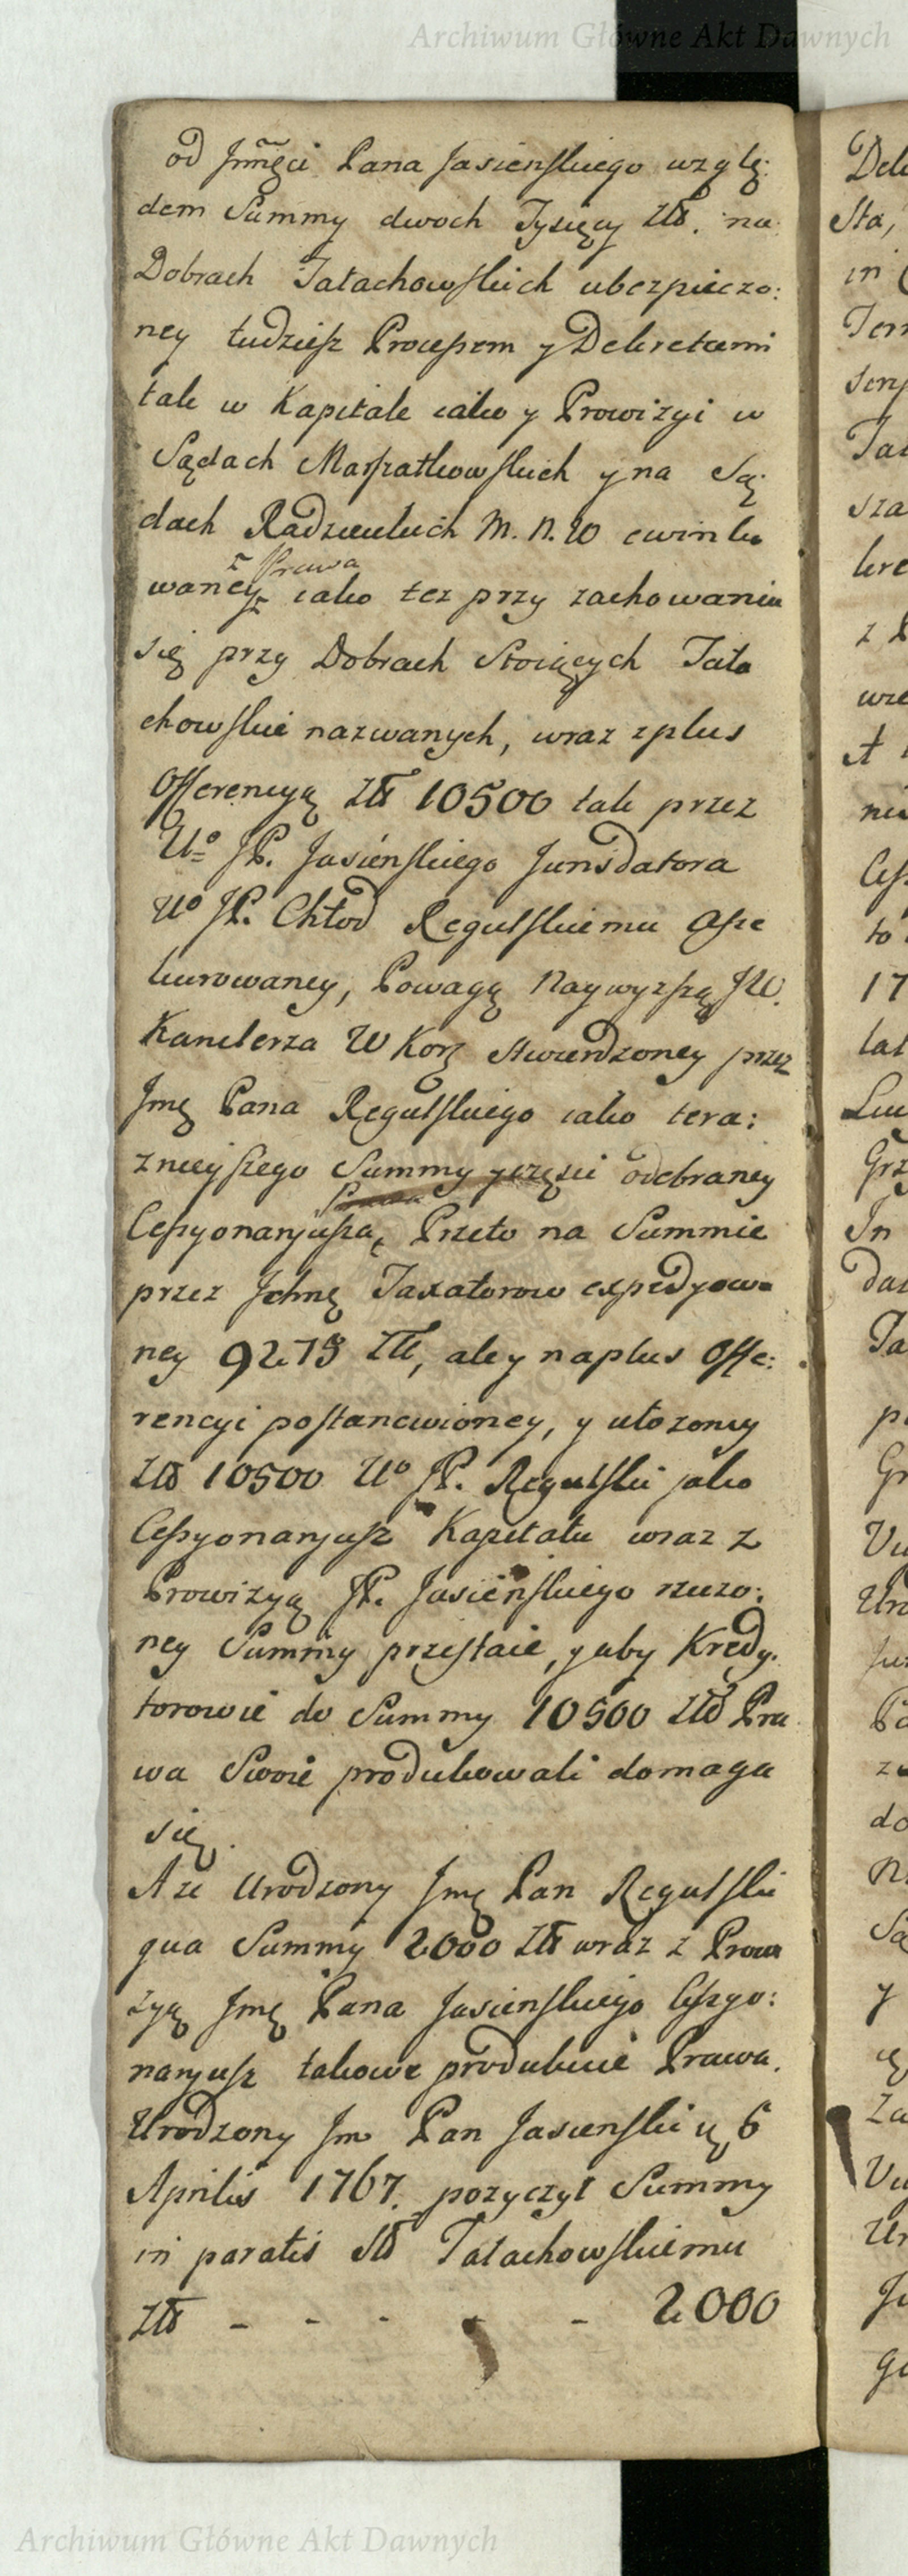 Archiwum Główne Akt Dawnych
od Jmści Pana Jasieńskiego wzglę:
dem Summy dwoch Tysięcy Złł. na
Dobrach Tatachowskich ubezpieczo:
ney tudziesz Processem y Dekretami
tak w Kapitale iako y Prowizyi w
Sądach Marszałkowskich y na Są:
dach Radzieckich M. N. W ewinko
Prawa
waney iako tez przy zachowaniu
się przy Dobrach Stoiących Tata
chowskie nazwanych, wraz z plus
Offerencyą Złł 10500 tak przez
Uo JP. Jasieńskiego Jurisdatora
Uo JP. Chłod Regulskiemu Asse
kurowaney, Powagą Naywyzszą JW.
Kanclerza W Kor stwierdzoney przez
Jmę Pana Regulskiego iako tera:
znieyszego Summy y częsci odebraney
Cessyonaryusza, Przeto na Summie
przez Ichmę Taxatorow expedyowa
ney 9273 Złł, ale y na plus Offe:
rencyi postanowioney, y ułozoney
Złł 10500 Uo JP. Regulski jako
Cessyonaryusz Kapitału wraz z
Prowizyą JP. Jasieńskiego rzeczo:
ney Summy przestaie, y aby Kredy.
torowie do Summy 10500 Złł Pra
wa Swoie produkowali domaga
się.
A ze Urodzony Jmę Pan Regulski
qua Summy 2000 Złł wraz z Prowi
zyą Jmę Pana Jasieńskiego Cessyo:
naryusz takowe produkuie Prawa.
Urodzony Jm Pan Jasieński 6
Aprilis 1767. pozyczył Summy
in paratis Tatachowskiemu
Złł - - - - - 2000
Archiwum Główne Akt Dawnych